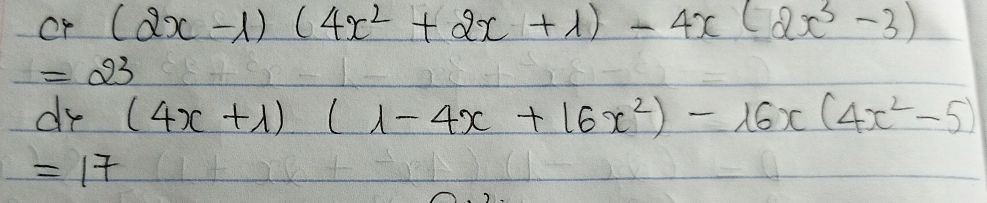 c, (2x - 1) (4x² + 2x + 1) - 4x (2x³ - 3)
= 23
d, (4x + 1) (1 - 4x + 16x²) - 16x (4x² - 5)
= 17